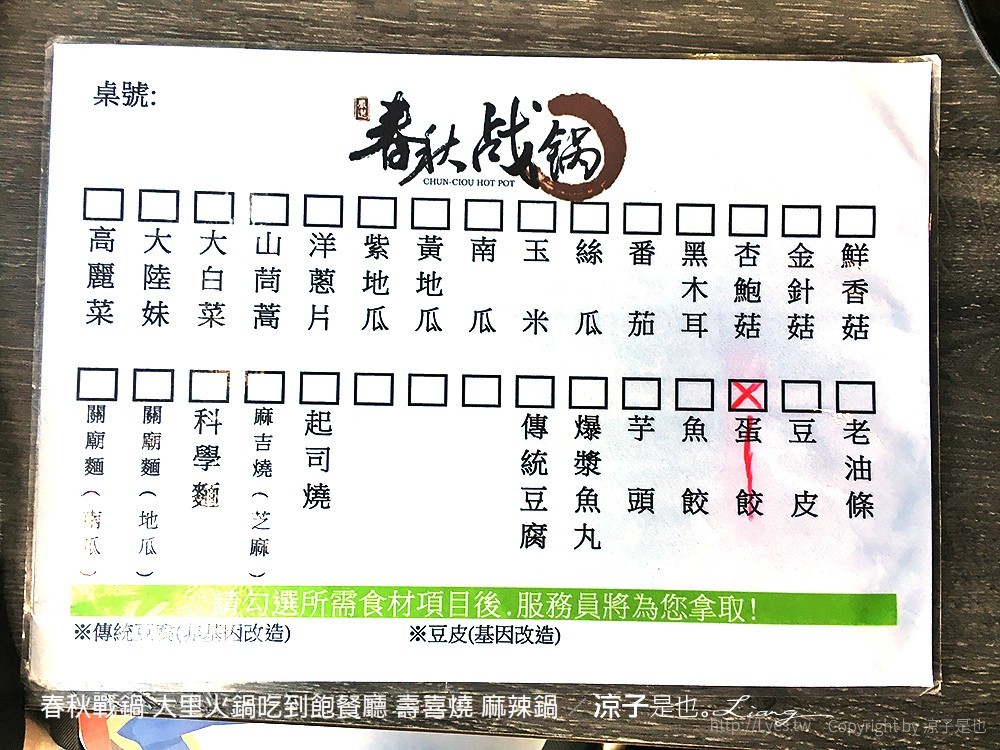 桌號:
嚴選
春秋战锅
CHUN-CIOU HOT POT
鮮香菇
金針菇
杏鮑菇
黑木耳
番茄
絲瓜
玉米
南瓜
黃地瓜
紫地瓜
洋蔥片
山茼蒿
大白菜
大陸妹
高麗菜
老油條
豆皮
蛋餃
魚餃
芋頭
爆漿魚丸
傳統豆腐
起司燒
麻吉燒(芝麻)
科學麵
關廟麵(地瓜)
關廟麵(南瓜)
請勾選所需食材項目後.服務員將為您拿取!
※傳統豆腐(非基因改造)
※豆皮(基因改造)
春秋戰鍋 大里火鍋吃到飽餐廳 壽喜燒 麻辣鍋 / 涼子是也。Liang
http://Lyes.tw Copyright by 涼子是也